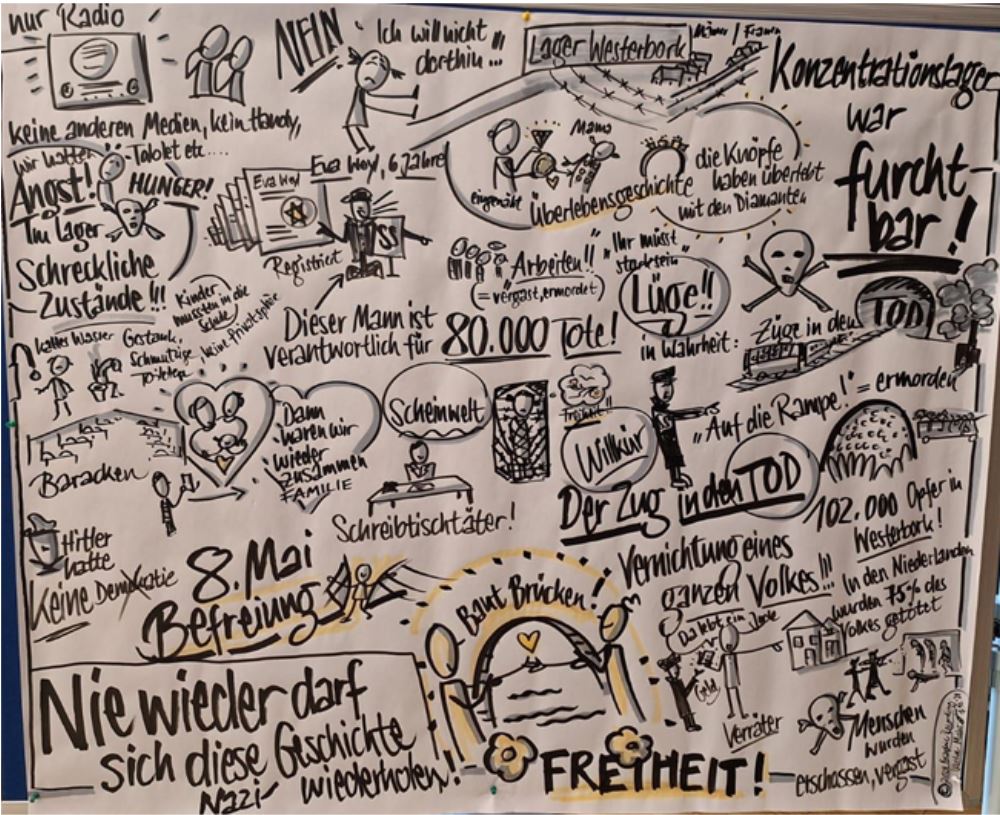 nur Radio
keine anderen Medien, kein Handy,
Tablet etc....
NEIN
Ich will nicht
dorthin...
Lager Westerbork
Männer / Frauen
Konzentrationslager
war
furcht-
bar!
Wir hatten
Angst!
HUNGER!
Im Lager
Schreckliche
Zustände!!!
Kinder
mussten in die
Schule
kaltes Wasser
Gestank,
Schmutzige
Toiletten
keine Privatsphäre
Eva Weyl, 6 Jahre
Eva Weyl
Registriert
SS
Dieser Mann ist
verantwortlich für
80.000 Tote!
Mama
eingenäht
Überlebensgeschichte
die Knöpfe
haben überlebt
mit den Diamanten
"Arbeiten!!"
(= vergast, ermordet)
"Ihr müsst
stark sein
Lüge!!
in Wahrheit:
Züge in den
TOD
Baracken
Dann
waren wir
wieder
zusammen
FAMILIE
Scheinwelt
Schreibtischtäter!
Freiheit!!
Willkür
"Auf die Rampe!" = ermorden
Der Zug in den TOD
102.000 Opfer in
Westerbork!
In den Niederlanden
wurden 75% des
Volkes getötet
Hitler
hatte
Keine Demokratie
8. Mai
Befreiung
Baut Brücken!
Vernichtung eines
ganzen Volkes!!!
Da lebt ein Jude
Geld
Verräter
Menschen
wurden
erschossen, vergast
Nie wieder darf
sich diese Geschichte
Nazi- wiederholen!
FREIHEIT!